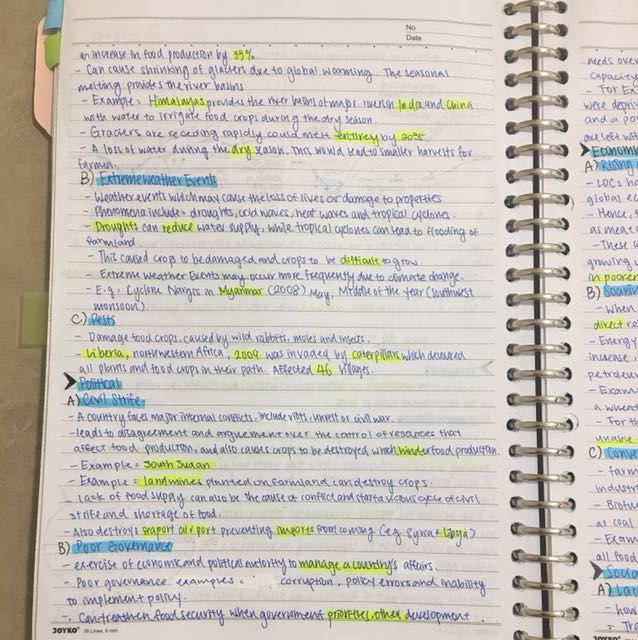 No
Date
an increase in food production by 35%
- Can cause shrinking of glaciers due to global warming. The seasonal
melting provides the river basins
- Example = Himalayas provides the river basin of major rivers in India and China
with water to irrigate food crops during the dry season.
- Glaciers are receding rapidly could melt entirely by 2035.
- A loss of water during the dry season. This would lead to smaller harvests for
farmers.
B) Extreme weather Events
- Weather events which may cause the loss of lives or damage to properties
- Phenomena include = droughts, cold waves, heat waves and tropical cyclones.
- Droughts can reduce water supply, while tropical cyclones can lead to flooding of
farmland.
- This caused crops to be damaged and crops to be difficult to grow.
- Extreme Weather Events may occur more frequently due to climate change.
- E.g = Cyclone Nargis in Myanmar (2008) May, Middle of the year (Southwest
monsoon)
C) Pests
- Damage food crops, caused by wild rabbits, moles and insects.
- Liberia, northwestern Africa, 2009 was invaded by caterpillars which devoured
all plants and food crops in their path. Affected 46 villages.
Political
A) Civil Strife
- A country faces major internal conflicts, include riots, unrest or civil war.
- leads to disagreement and arguement over the control of resources that
affect food production, and also causes crops to be destroyed which hinder food production.
- Example = South Sudan
- Example = landmines planted on farmland can destroy crops.
- lack of food supply can also be the cause of conflict and start a vicious cycle of civil
strife and shortage of food.
- Also destroys seaport airport preventing imports from coming (e.g Syria + Libya)
B) Poor Governance
- exercise of economic and political authority to manage a country's affairs.
- Poor governance examples = corruption, policy errors and inability
to implement policy.
- Can threathen food security when government priorities other development
JOYKO 36 Lines, 6 mm
needs over
capacity
- For Ex
were depe
and a po
are left w
Economic
A) Rising
- LDCs ha
global e
- Hence,
as meat
- These
growing
in poorer
B) Soaring
- When
direct
- Energy
increase
petroleu
- Exam
a wheat
- For th
C) Conve
- farm
industri
- Biofu
as coal
- Exam
all food
Social
A) Lac
- how
- Tra